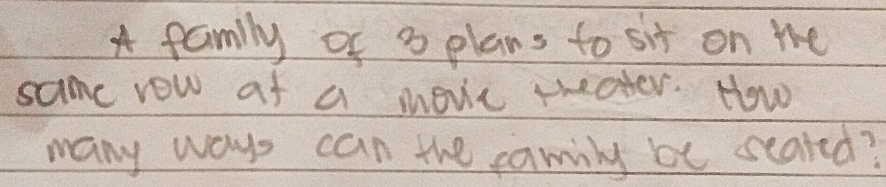 A family of 3 plans to sit on the
same row at a movie theater. How
many ways can the family be seated?